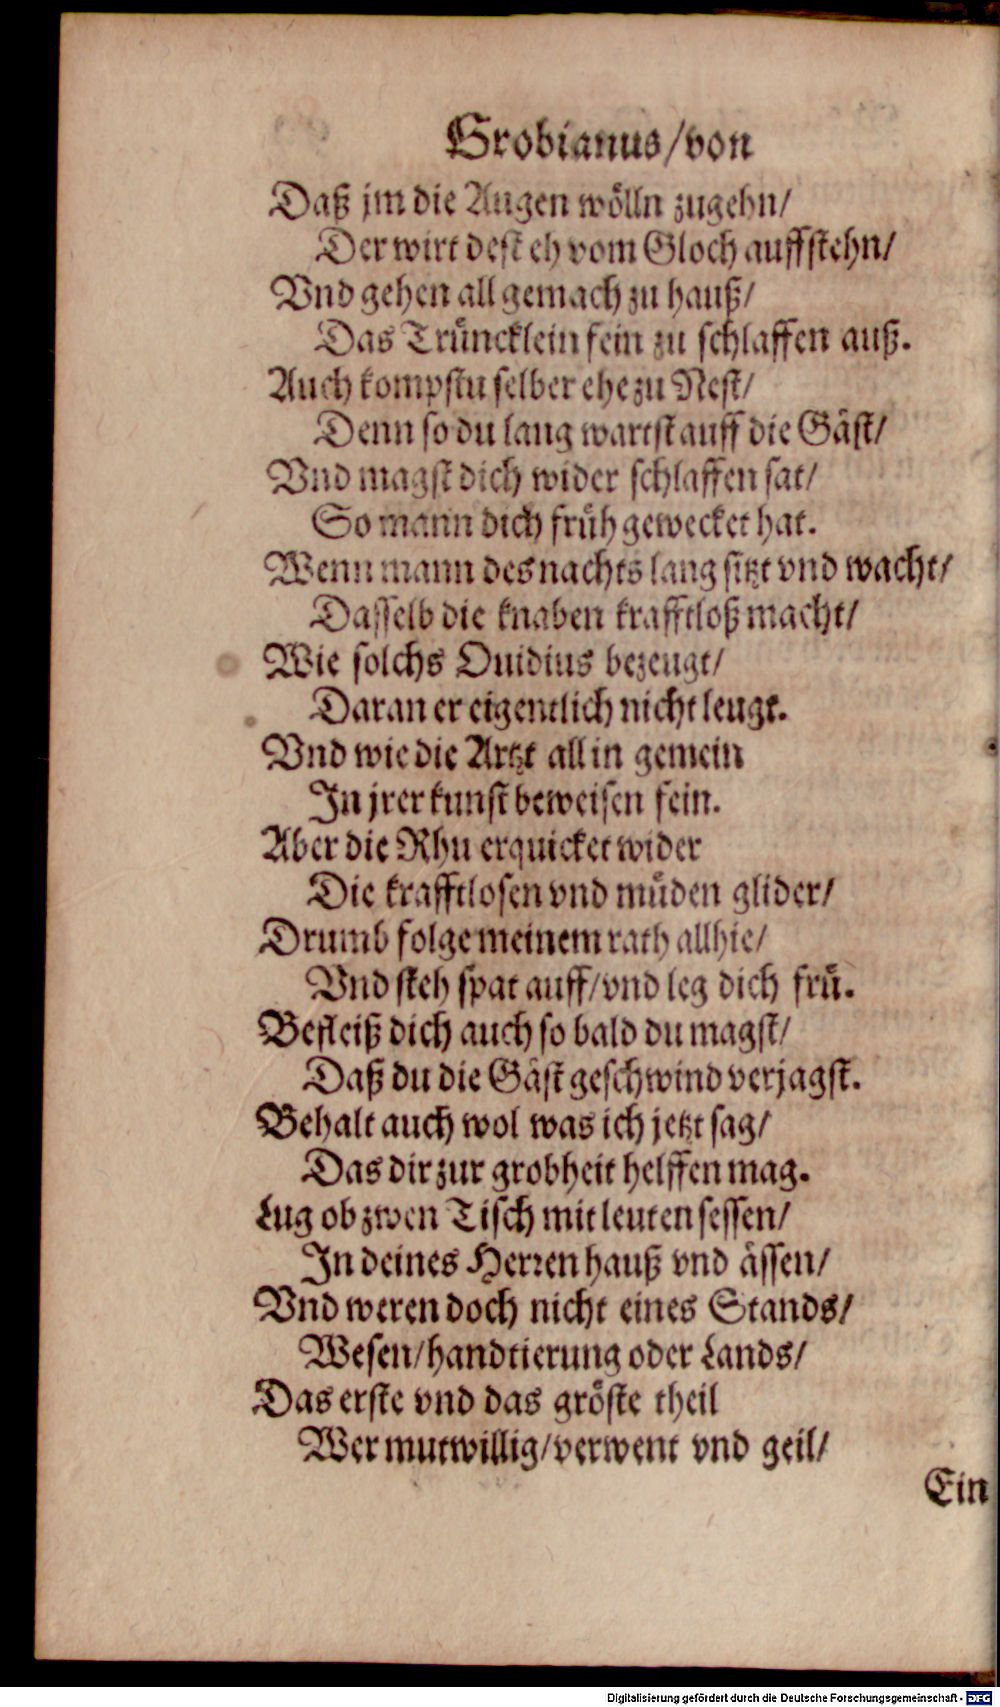 Grobianus/von
Daß jm die Augen wölln zugehn/
Der wirt dest eh vom Gloch auffstehn/
Vnd gehen all gemach zu hauß/
Das Trüncklein fein zu schlaffen auß.
Auch kompstu selber ehe zu Nest/
Denn so du lang wartst auff die Gäst/
Vnd magst dich wider schlaffen sat/
So mann dich früh gewecket hat.
Wenn mann des nachts lang sitzt vnd wacht/
Dasselb die knaben krafftloß macht/
Wie solchs Ouidius bezeugt/
Daran er eigentlich nicht leugt.
Vnd wie die Artzt all in gemein
In jrer kunst beweisen fein.
Aber die Rhu erquicket wider
Die krafftlosen vnd müden glider/
Drumb folge meinem rath allhie/
Vnd steh spat auff/vnd leg dich frü.
Befleiß dich auch so bald du magst/
Daß du die Gäst geschwind verjagst.
Behalt auch wol was ich jetzt sag/
Das dir zur grobheit helffen mag.
Lug ob zwen Tisch mit leuten sessen/
In deines Herren hauß vnd ässen/
Vnd weren doch nicht eines Stands/
Wesen/handtierung oder Lands/
Das erste vnd das gröste theil
Wer mutwillig/verwent vnd geil/
Ein
Digitalisierung gefördert durch die Deutsche Forschungsgemeinschaft - DFG